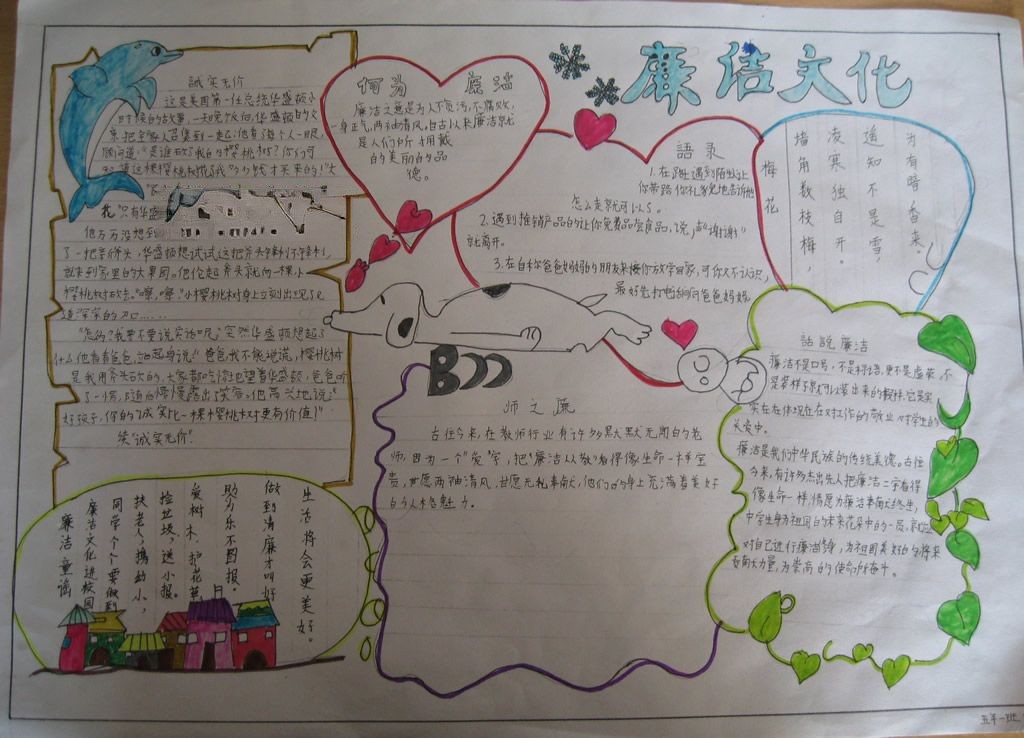 廉洁文化
誠实无价
这是美国第一任总统华盛顿小
时候的故事,一天晚饭后,华盛顿的父
亲把全家人召集到一起,他看遍个人一眼,
道这棵樱桃树花了我
花"只有华盛
他万万没想到
了一把斧协大,华盛顿想试试这把斧头锋利不锋利,
就来到家里的大果园。他伦起斧头就向一棵小
樱桃树砍去。"嚓,嚓,"小樱桃树身上立刻出现了几
道深深的刀口......
"怎么办?我要不要说实话呢?突然华盛顿想起了
什么他看看爸爸,
爸爸我不能说谎,樱桃树
是我用斧头砍的,大家都吃惊地望着华盛顿,爸爸听
慢慢露出笑容。他高兴地说:"
好孩子,你的诚实比一棵樱桃树更有价值!"
笑"诚实无价".
何为 廉洁
廉洁之意是为人不贪污,不腐败,
一身正气,两袖清风,自古以来廉洁就
是人们所拥戴
的美丽的品
德。
語录
1.在路上遇到陌生让
你带路 你礼貌地告诉他
怎么走就可以了。
2.遇到推销产品的让你免费品尝食品,说声"谢谢"
就离开。
3.在自称爸爸妈妈的朋友来接你放学回家,可你又不认识,
最好先打电话问爸爸妈妈.
梅花
墙角数枝梅,
凌寒独自开。
遥知不是雪,
为有暗香来。
师之廉
古往今来,在教师行业有许多默默无闻的老
师,因为一个"爱"字,把"廉洁从教"看得像生命一样宝
贵,甘愿两袖清风,甘愿无私奉献,他们的身上充满着美好
的人格魅力.
話説廉洁
廉洁不是口号,不是标语,更不是虚荣,不
实在在体现在在对工作的敬业对学生的
关爱中。
廉洁是我们中华民族的传统美德。古往
今来,有许多杰出先人把廉洁二字看得
像生命一样,情愿为廉洁奉献终生,
中学生身为祖国的未来花朵中的一员,就应
对自己进行廉洁修身,为祖国美好的将来
贡献力量,为崇高的使命所奋斗。
廉洁童谣
廉洁文化进校园
同学个个要做到
扶老人,携幼小,
捡垃圾,送小报。
爱树木,护花草,
助人为乐不图报.
做到清廉才叫好
生活将会更美好。
五年一班